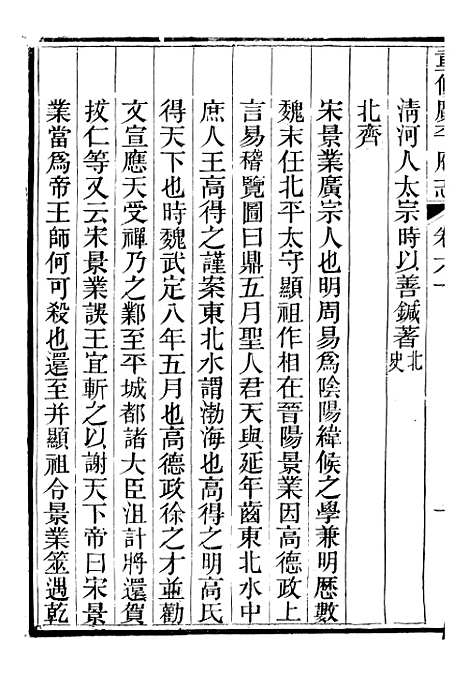 重修廣平府志 卷六十 一
清河人太宗時以善鍼著北史
北齊
宋景業廣宗人也明周易爲陰陽緯候之學兼明歷數
魏末任北平太守顯祖作相在晉陽景業因高德政上
言易稽覽圖曰鼎五月聖人君天與延年齒東北水中
庶人王高得之謹案東北水謂渤海也高得之明高氏
得天下也時魏武定八年五月也高德政徐之才並勸
文宣應天受禪乃之鄴至平城都諸大臣沮計將還賀
拔仁等又云宋景業誤王宜斬之以謝天下帝曰宋景
業當爲帝王師何可殺也還至并顯祖令景業筮遇乾